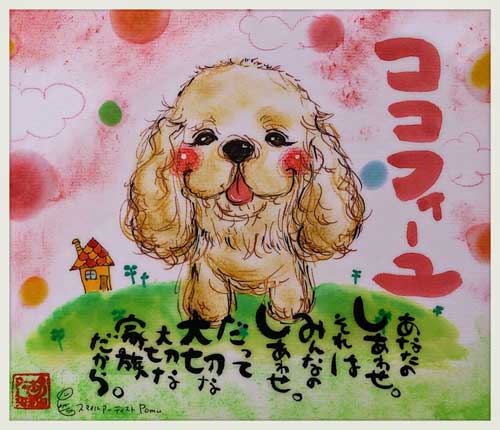 ココフィーユ
あなたの
しあわせ。
それは
みんなの
しあわせ。
だって
大切な
大切な
家族
だから。
スマイルアーティスト Pomu